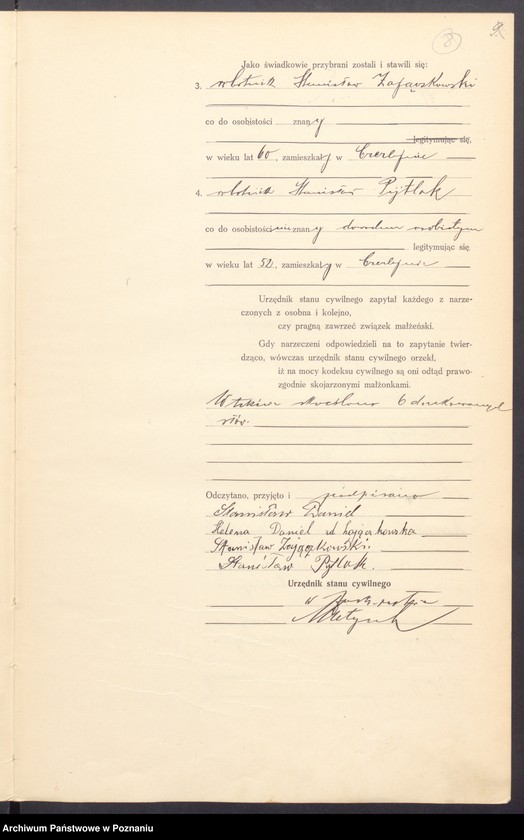 8
Jako świadkowie przybrani zostali i stawili się:
3. robotnik Stanisław Zajączkowski
co do osobistości znany
legitymując się,
w wieku lat 60, zamieszkały w Czerlejnie
4. robotnik Stanisław Pytlak
co do osobistości nieznany dowodem osobistym
legitymując się,
w wieku lat 52, zamieszkały w Czerlejnie
Urzędnik stanu cywilnego zapytał każdego z narze-
czonych z osobna i kolejno,
czy pragną zawrzeć związek małżeński.
Gdy narzeczeni odpowiedzieli na to zapytanie twier-
dząco, wówczas urzędnik stanu cywilnego orzekł,
iż na mocy kodeksu cywilnego są oni odtąd prawo-
zgodnie skojarzonymi małżonkami.
W tekście skreślono 6 drukowanych
słów.
Odczytano, przyjęto i podpisano
Stanisław Daniel
Helena Daniel ud Zajączkowska
Stanisław Zajączkowski.
Stanisław Pytlak.
Urzędnik stanu cywilnego
w
Archiwum Państwowe w Poznaniu